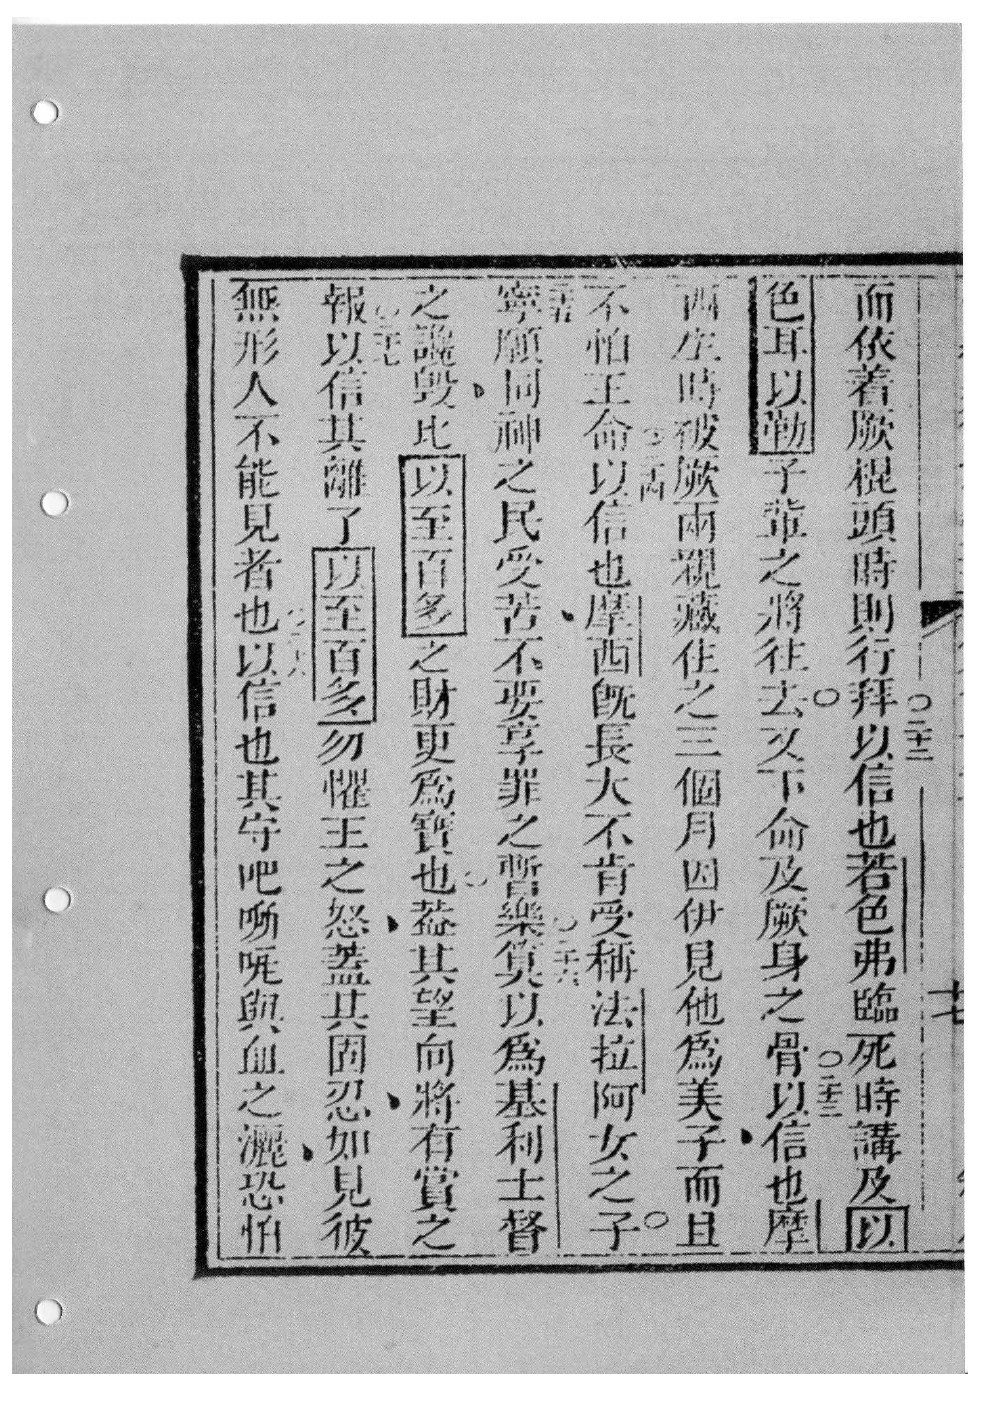 而依着厥棍頭時則行拜○二十二以信也若色弗臨死時講及以
色耳以勒子輩之將往去○又下命及厥身之骨○二十三以信也摩
西生時被厥兩親藏住之三個月因伊見他爲美子而且
不怕王命○二十四以信也摩西旣長大不肯受稱法拉阿女之子○
二十五寧願同神之民受苦不要享罪之暫樂○二十六算以爲基利士督
之讒毁比以至百多之財更爲寶也○葢其望向將有賞之
報○二十七以信其離了以至百多勿懼王之怒蓋其固忍如見彼
無形人不能見者也○二十八以信也其守吧㗭呢與血之灑恐怕
十七